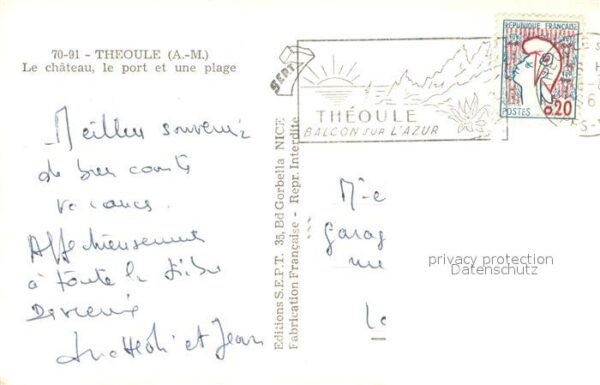 70-91 - THEOULE (A.-M.)
Le château, le port et une plage
Meilleur souvenir
de bien courtes
vacances.
Affectueusement
à toute la tribu
et Jean
Editions S.E.P.T. 35, Bd Gorbella NICE
Fabrication Française - Repr. Interdite
SEPT
THÉOULE
BALCON SUR L'AZUR
REPUBLIQUE FRANÇAISE
0,20
POSTES
garag
privacy protection
Datenschutz